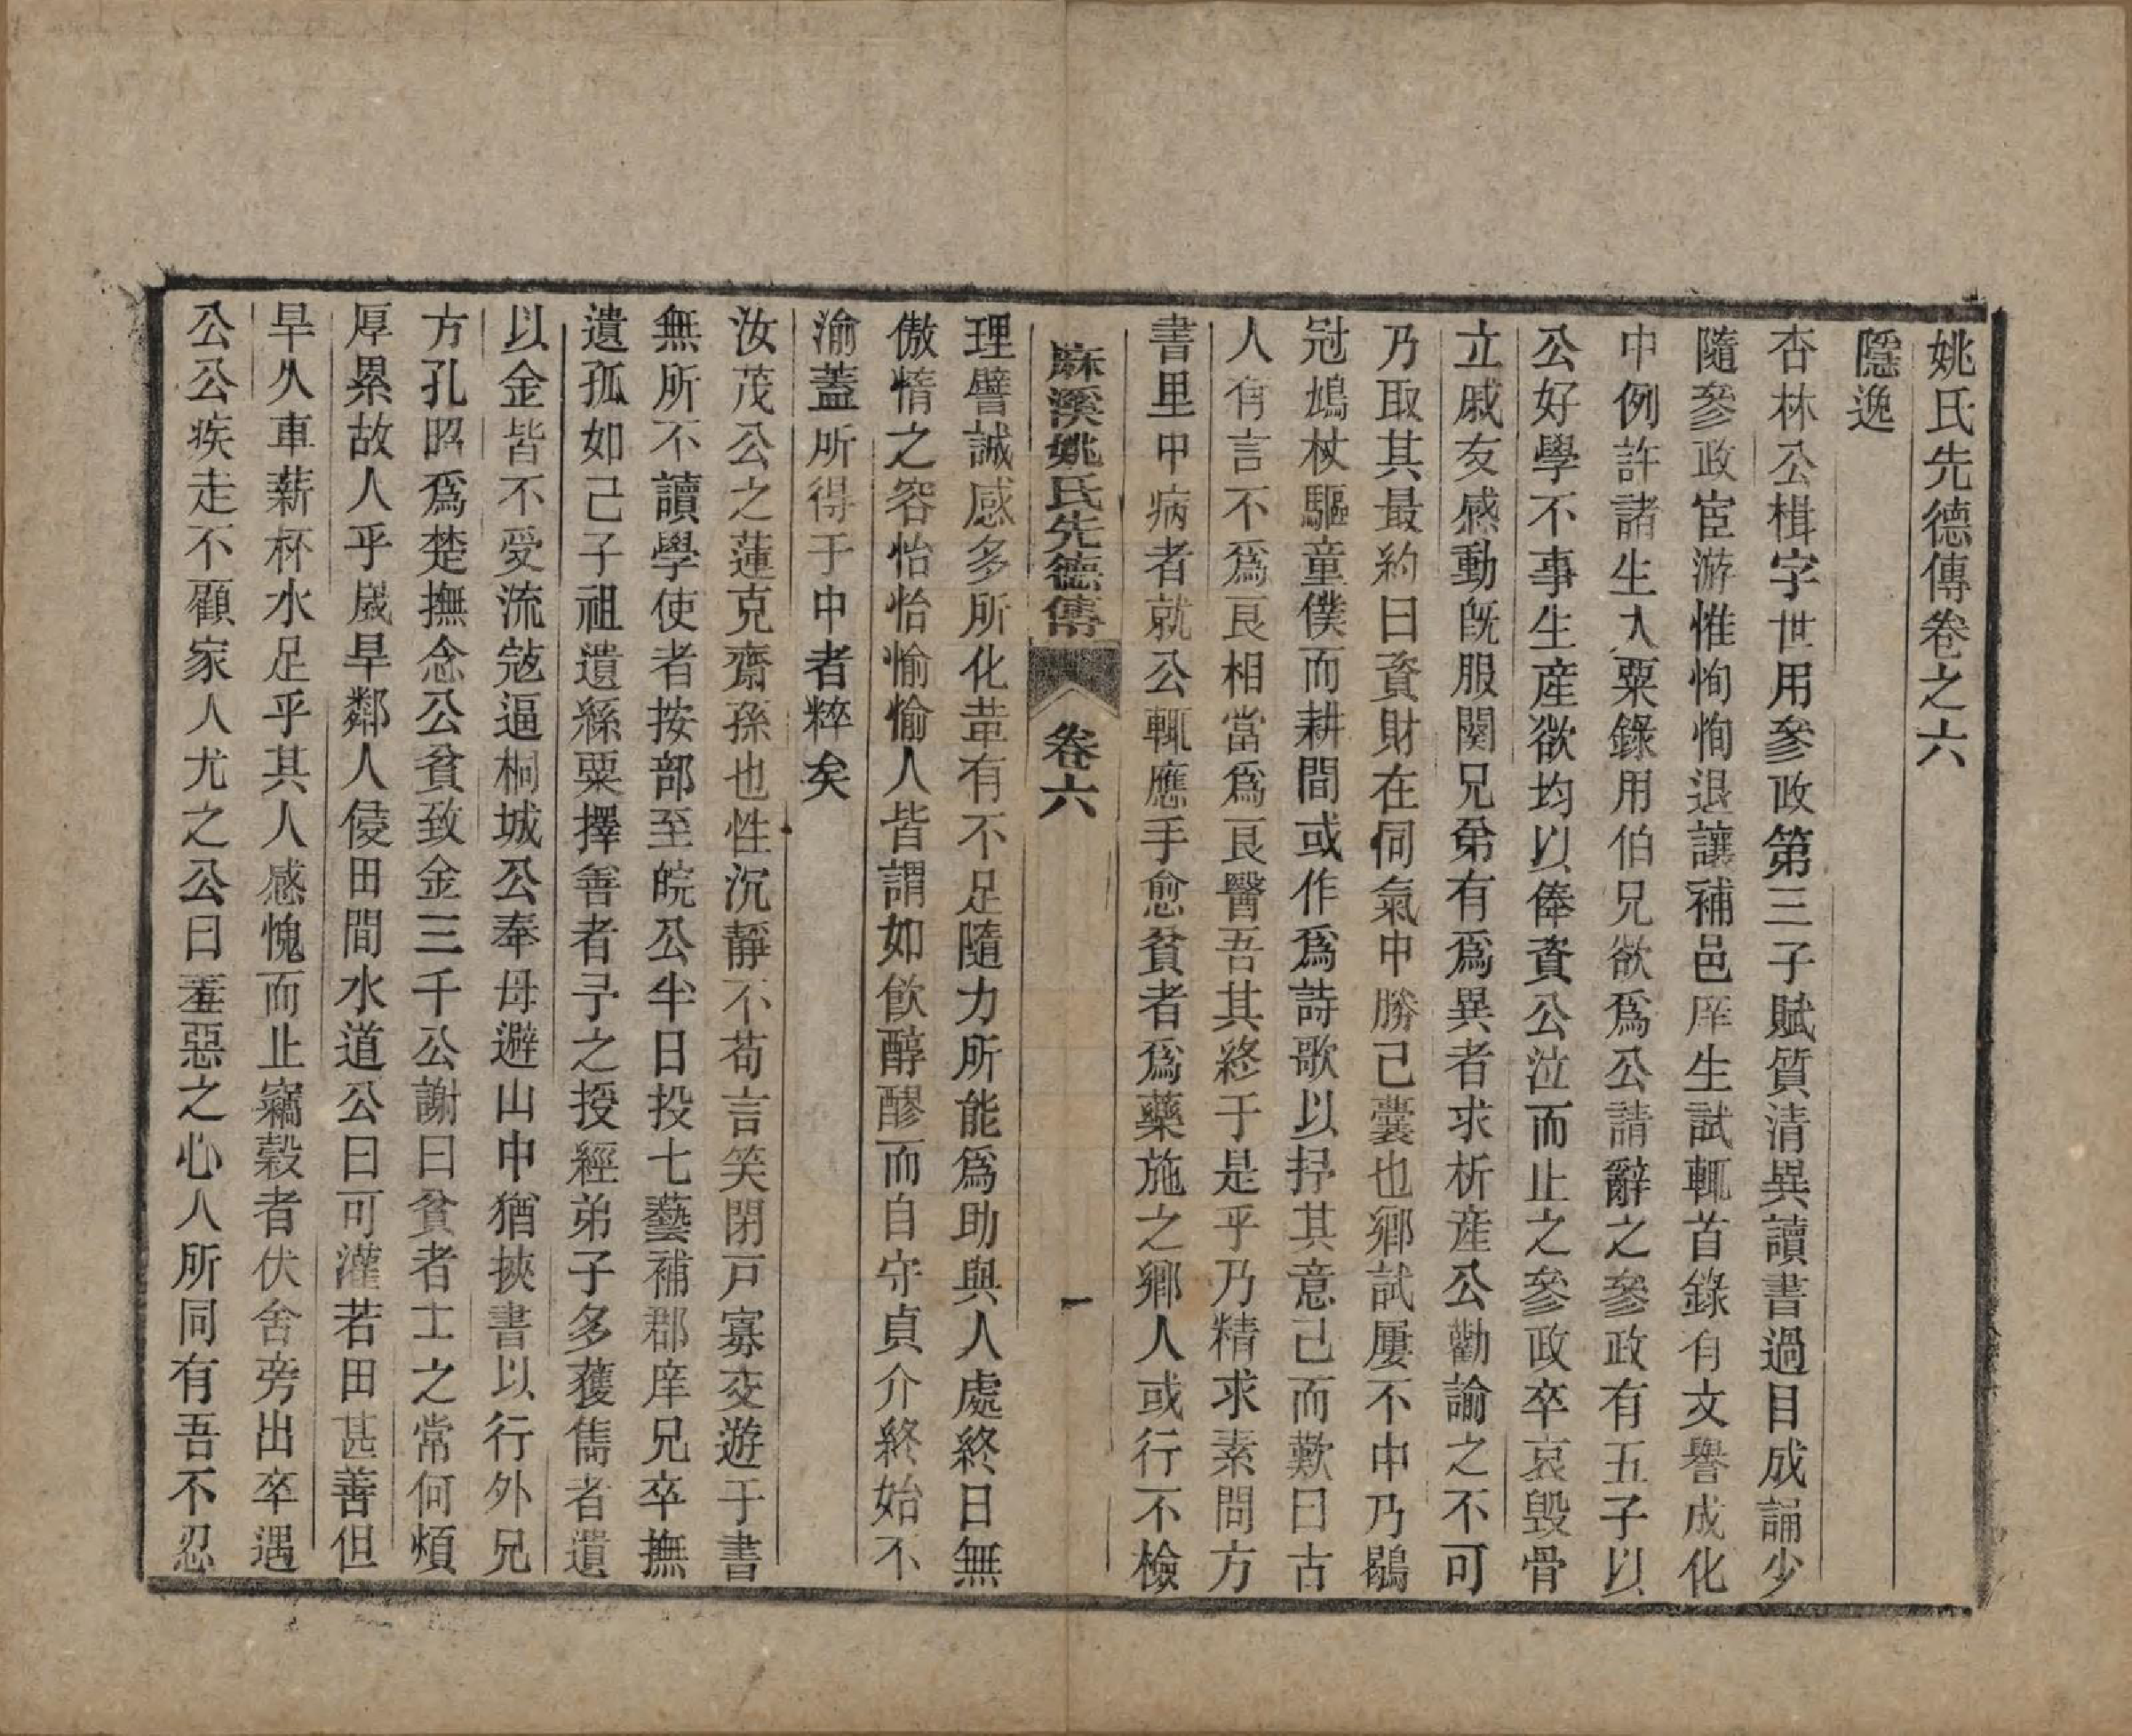 姚氏先德傳卷之六
隱逸
杏林公楫字世用參政第三子賦質清異讀書過目成誦少
隨參政宦游惟恂恂退讓補邑庠生試輒首錄有文譽成化
中例許諸生入粟錄用伯兄欲爲公請辭之參政有五子以
公好學不事生産欲均以俸資公泣而止之參政卒哀毀骨
立戚友感動旣服闋兄弟有爲異者求析産公勸諭之不可
乃取其最約曰資財在同氣中勝己囊也鄉試屢不中乃鶡
冠鳩杖驅童僕而耕間或作爲詩歌以抒其意已而歎曰古
人有言不爲良相當爲良醫吾其終于是乎乃精求素問方
書里中病者就公輒應手愈貧者爲藥施之鄉人或行不檢
麻溪姚氏先德傳 卷六 一
理譬誠感多所化革有不足隨力所能爲助與人處終日無
傲惰之容怡怡愉愉人皆謂如飮醇醪而自守貞介終始不
渝蓋所得于中者粹矣
汝茂公之蓮克齋孫也性沉靜不苟言笑閉戸寡交遊于書
無所不讀學使者按部至皖公半日投七藝補郡庠兄卒撫
遺孤如己子祖遺絲粟擇善者予之授經弟子多獲雋者遺
以金皆不受流宼逼桐城公奉母避山中猶挾書以行外兄
方孔炤爲楚撫念公貧致金三千公謝曰貧者士之常何煩
厚累故人乎嵗旱鄰人侵田間水道公曰可灌若田甚善但
旱久車薪杯水足乎其人感愧而止竊穀者伏舍旁出卒遇
公公疾走不顧家人尤之公曰羞惡之心人所同有吾不忍